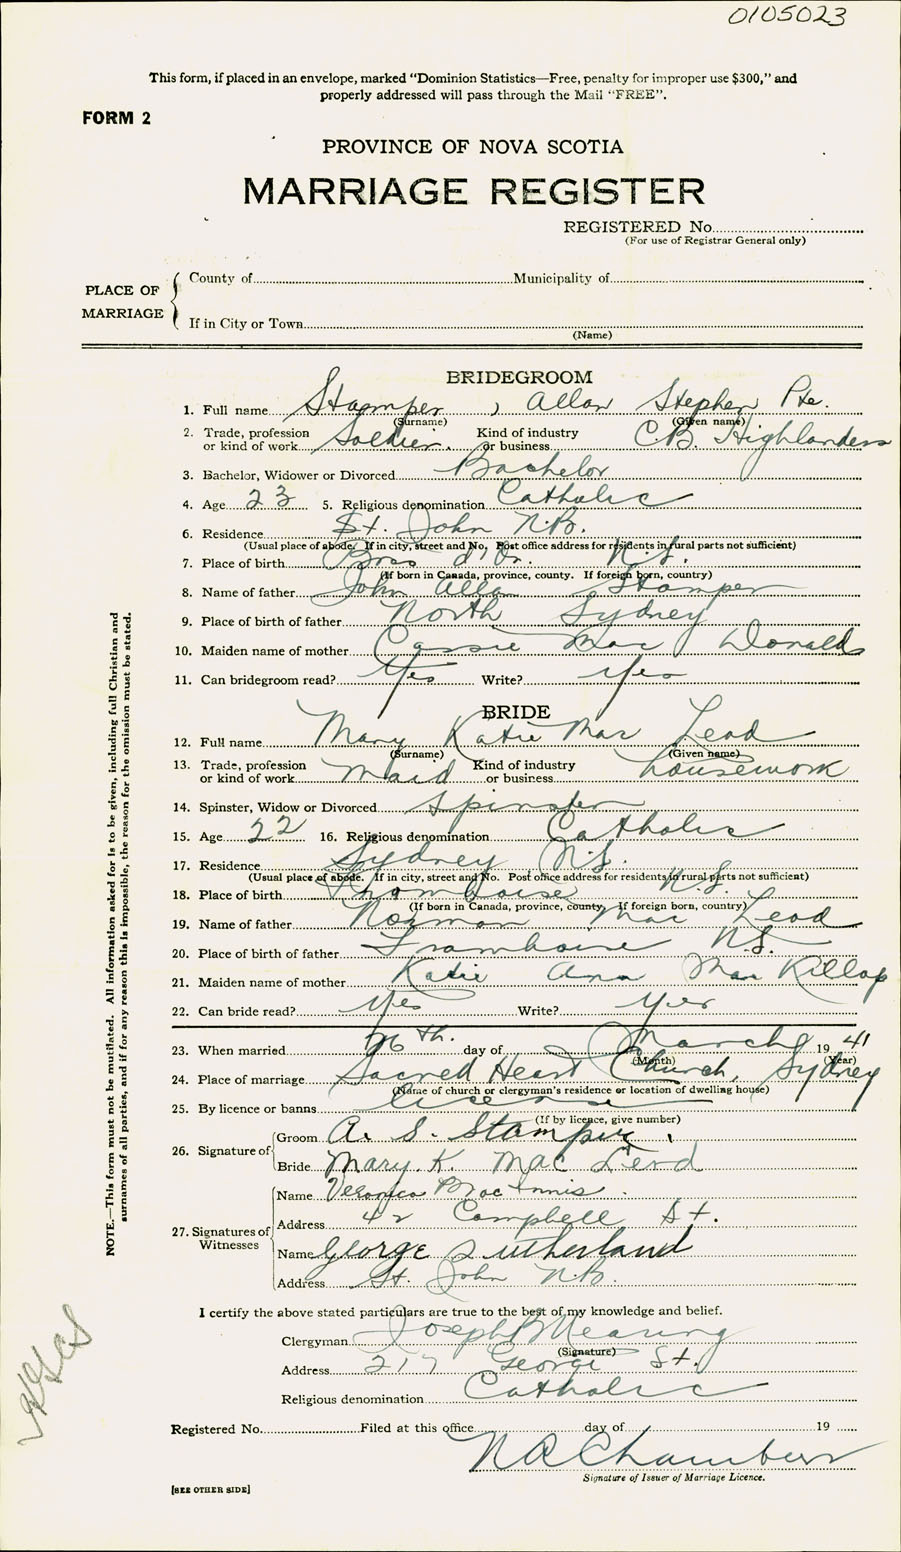 0105023
This form, if placed in an envelope, marked "Dominion Statistics—Free, penalty for improper use $300," and
properly addressed will pass through the Mail "FREE".
FORM 2
PROVINCE OF NOVA SCOTIA
MARRIAGE REGISTER
REGISTERED No.
(For use of Registrar General only)
PLACE OF MARRIAGE
County of Municipality of
If in City or Town
(Name)
BRIDEGROOM
1. Full name Stamper, Allan Stephen Pte.
(Surname) (Given name)
2. Trade, profession or kind of work Soldier. Kind of industry or business C.B. Highlanders
3. Bachelor, Widower or Divorced Bachelor
4. Age 23 5. Religious denomination Catholic
6. Residence St. John N.B.
(Usual place of abode. If in city, street and No. Post office address for residents in rural parts not sufficient)
7. Place of birth Bras d'Or. N.S.
(If born in Canada, province, county. If foreign born, country)
8. Name of father John Allan Stamper
9. Place of birth of father North Sydney
10. Maiden name of mother Cassie Mac Donald
11. Can bridegroom read? Yes Write? Yes
BRIDE
12. Full name Mary Katie Mac Leod
(Surname) (Given name)
13. Trade, profession or kind of work maid Kind of industry or business housework
14. Spinster, Widow or Divorced Spinster
15. Age 22 16. Religious denomination Catholic
17. Residence Sydney N.S.
(Usual place of abode. If in city, street and No. Post office address for residents in rural parts not sufficient)
18. Place of birth N.S.
(If born in Canada, province, county. If foreign born, country)
19. Name of father Norman Mac Leod
20. Place of birth of father Framboise N.S.
21. Maiden name of mother Katie Ann MacKillop
22. Can bride read? Yes Write? Yes
23. When married day of March 19 41
(Month) (Year)
24. Place of marriage Sacred Heart Church, Sydney
(Name of church or clergyman's residence or location of dwelling house)
25. By licence or banns license
(If by licence, give number)
26. Signature of
Groom A. S. Stamper.
Bride Mary. K. Mac Leod
27. Signatures of Witnesses
Name Veronica MacInnis.
Address 42 Campbell St.
Name George Sutherland
Address St. John N.B.
I certify the above stated particulars are true to the best of my knowledge and belief.
Clergyman Joseph B
(Signature)
Address 217 George St.
Religious denomination Catholic
Registered No. Filed at this office day of 19
N A Chambers
Signature of Issuer of Marriage Licence.
[SEE OTHER SIDE]
NOTE.—This form must not be mutilated. All information asked for is to be given, including full Christian and
surnames of all parties, and if for any reason this is impossible, the reason for the omission must be stated.